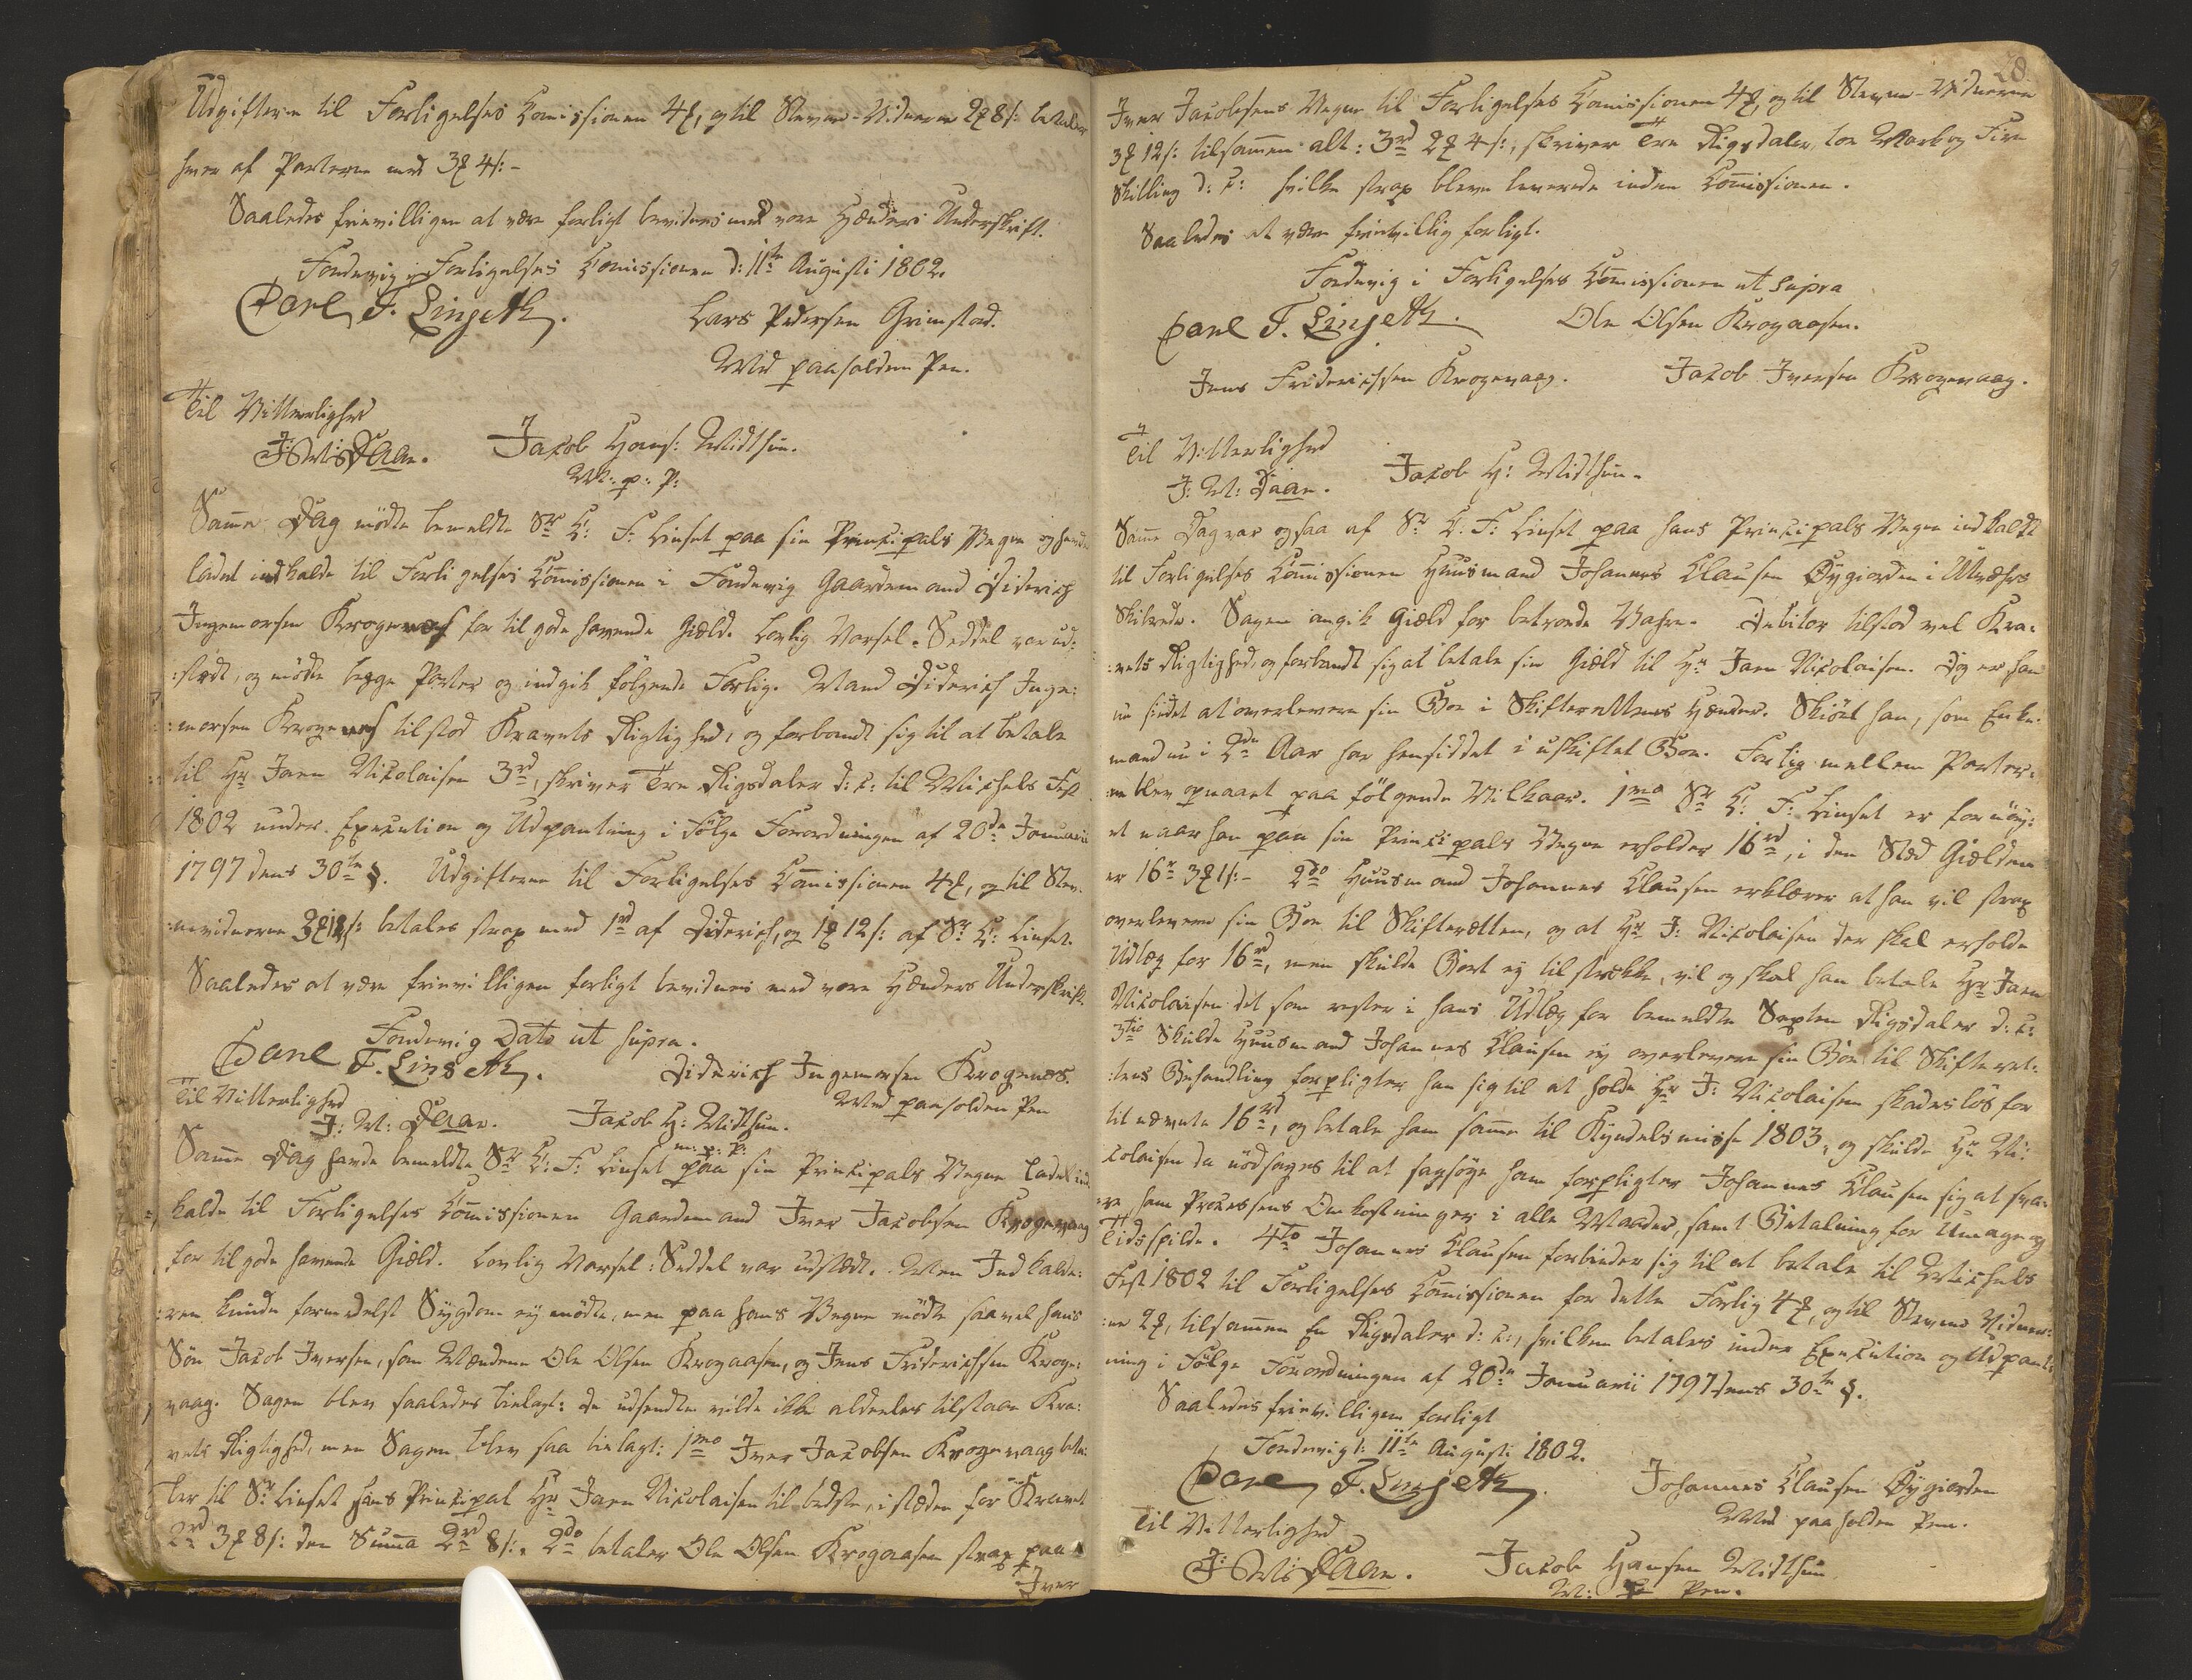 Udgifterne til Forligelses Comissionen 4 ₰, og til Stevne-Vidnerne 2 ₰ 8 s: betaler
hver af Parterne med 3 ₰ 4 s:-
Saaledes frievilligen at være forligt bevidnes med vore Hænders Underskrift.
Fondevig i Forligelses Comissionen d: 11te Augusti 1802.
Carl F. Linseth. Lars Pedersen Grimstad.
Med paaholden Pen.
Til Vitterlighed
J: M: Daae. Jacob Hans: Midthun.
M: p: P:
Same Dag mödte bemeldte Sr C: F: Linset paa sin Principals Vegne og havde
ladet indkalde til Forligelses Comissionen i Fondevig Gaardemand Diderich
Ingemorsen Krogenæs for til gode havende Giæld. Lovlig Varsel-Seddel var ud:
:stædt, og mödte begge Parter og indgik fölgende Forlig. Mand Diderich Inge:
:morsen Krogenæs tilstod Kravets Rigtighed, og forbandt sig til at betale
til Hr Jaen Nicolaisen 3rd, skriver Tre Rigsdaler d: c: til Michels Fest
1802 under Execution og Udpantning i Fölge Forordningen af 20de Januarii
1797 dens 30te §. Udgifterne til Forligelses Comissionen 4 ₰, og til Stev:
:nevidnerne 3 ₰ 12 s: betales strax med 1rd af Diderich, og 1 ₰ 12 s: af Sr C: Linset.
Saaledes at være frievilligen forligt bevidnes med vore Hænders Underskrift.
Fondevig Dato ut supra.
Carl F. Linseth. Diderich Ingemorsen Krogenæs.
Med paaholden Pen
Til Vitterlighed
J: M: Daae. Jacob H: Midthun.
m: p: P:
Same Dag havde bemeldte Sr C: F: Linset paa sin Principals Vegne ladet ind
kalde til Forligelses Comissionen Gaardemand Iver Jacobsen Krogevaag
for til gode havende Giæld. Lovlig Varsel-Seddel var udstædt. Men Indkalde:
:ren kunde formedelst Sygdom ey mödte, men paa hans Vegne mödte saavel hans
Sön Jacob Iversen, som Mændene Ole Olsen Krogaasen, og Jens Friderichsen Kroge:
vaag. Sagen blev saaledes bielagt: de udsendte vilde ikke aldeeles tilstaae Kra:
vets Rigtighed, men Sagen blev saa bielagt: 1mo Iver Jacobsen Krogevaag beta:
ler til Sr Linset hans Principal Hr Jaen Nicolaisen til bedste, i stæden for Kravet
2rd 3 ₰ 8 s: den Suma 2rd 8 s:. 2do betaler Ole Olsen Krogaasen strax paa
Iver
28.
Iver Jacobsens Vegne til Forligelses Comissionen 4 ₰, og til Stevne-Vidnerne
3 ₰ 12 s: tilsamen alt: 3rd 2 ₰ 4 s:, skriver Tre Rigsdaler, toe Mark og Fire
Skilling d: c: hvilke strax bleve leverede inden Comissionen.
Saaledes at være frievillig forligt.
Fondevig i Forligelses Comissionen ut supra
Carl F. Linseth. Ole Olsen Krogaasen.
Jens Friderichsen Krogevaag. Jacob Iversen Krogevaag.
Til Vitterlighed
J: M: Daae. Jacob H: Midthun.
Same Dag var ogsaa af Sr C: F: Linset paa hans Principals Vegne indkaldt
til Forligelses Comissionen Huusmand Johannes Clausen Öygiorden i
Skibrede. Sagen angik Giæld for betroede Vahre. Debitor tilstod vel Kra:
:vets Rigtighed, og forbandt sig at betale sin Giæld til Hr Jaen Nicolaisen. Dog er han
nu sindet at overlevere sin Boe i Skifterettens Hænder. Skiönt han, som Enke:
mand nu i 2de Aar har hensiddet i uskiftet Boe. Forlig mellem Parter:
ne blev opnaaet paa fölgende Vilkaar. 1mo Sr C: F: Linset er fornöy:
et naar han paa sin Principals Vegne erholder 16rd, i den Stæd Giælden
er 16r 3 ₰ 1 s:- 2do Huusmand Johannes Clausen erklærer at han vil strax
overlevere sin Boe til Skifteretten, og at Hr J: Nicolaisen der skal erholde
Udlæg for 16rd, men skulde Boet ey tilstrække, vil og skal han betale Hr Jaen
Nicolaisen det som rester i hans Udlæg for bemeldte Sexten Rigsdaler d: c:
3tio Skulde Huusmand Johannes Clausen ey overlevere sin Boe til Skifteret:
:tens Behandling forpligter han sig til at holde Hr J: Nicolaisen skadeslös for
benævnte 16rd, og betale ham same til Kyndelsmisse 1803, og skulde Hr Ni:
colaisen da nödsages til at sagsöge ham forpligter Johannes Clausen sig at sva:
re ham Processens Omkostninger i alle Maader, samt Betalning for Umage og
Tidsspilde. 4to Johannes Clausen forbinder sig til at betale til Michels
Fest 1802 til Forligelses Comissionen for dette Forlig 4 ₰, og til Stevne Vidner:
:ne 2 ₰, tilsamen En Rigsdaler d: c:, hvilken betales under Execution og Udpant:
ning i Fölge Forordningen af 20de Januarii 1797 dens 30te §.
Saaledes frievilligen forligt
Fondevig d: 11te Augusti 1802.
Carl F. Linseth. Johannes Clausen Öygiorden
Med paaholden Pen.
Til Vitterlighed
J: M: Daae. Jacob Hansen Midthun
M: P: Pen.